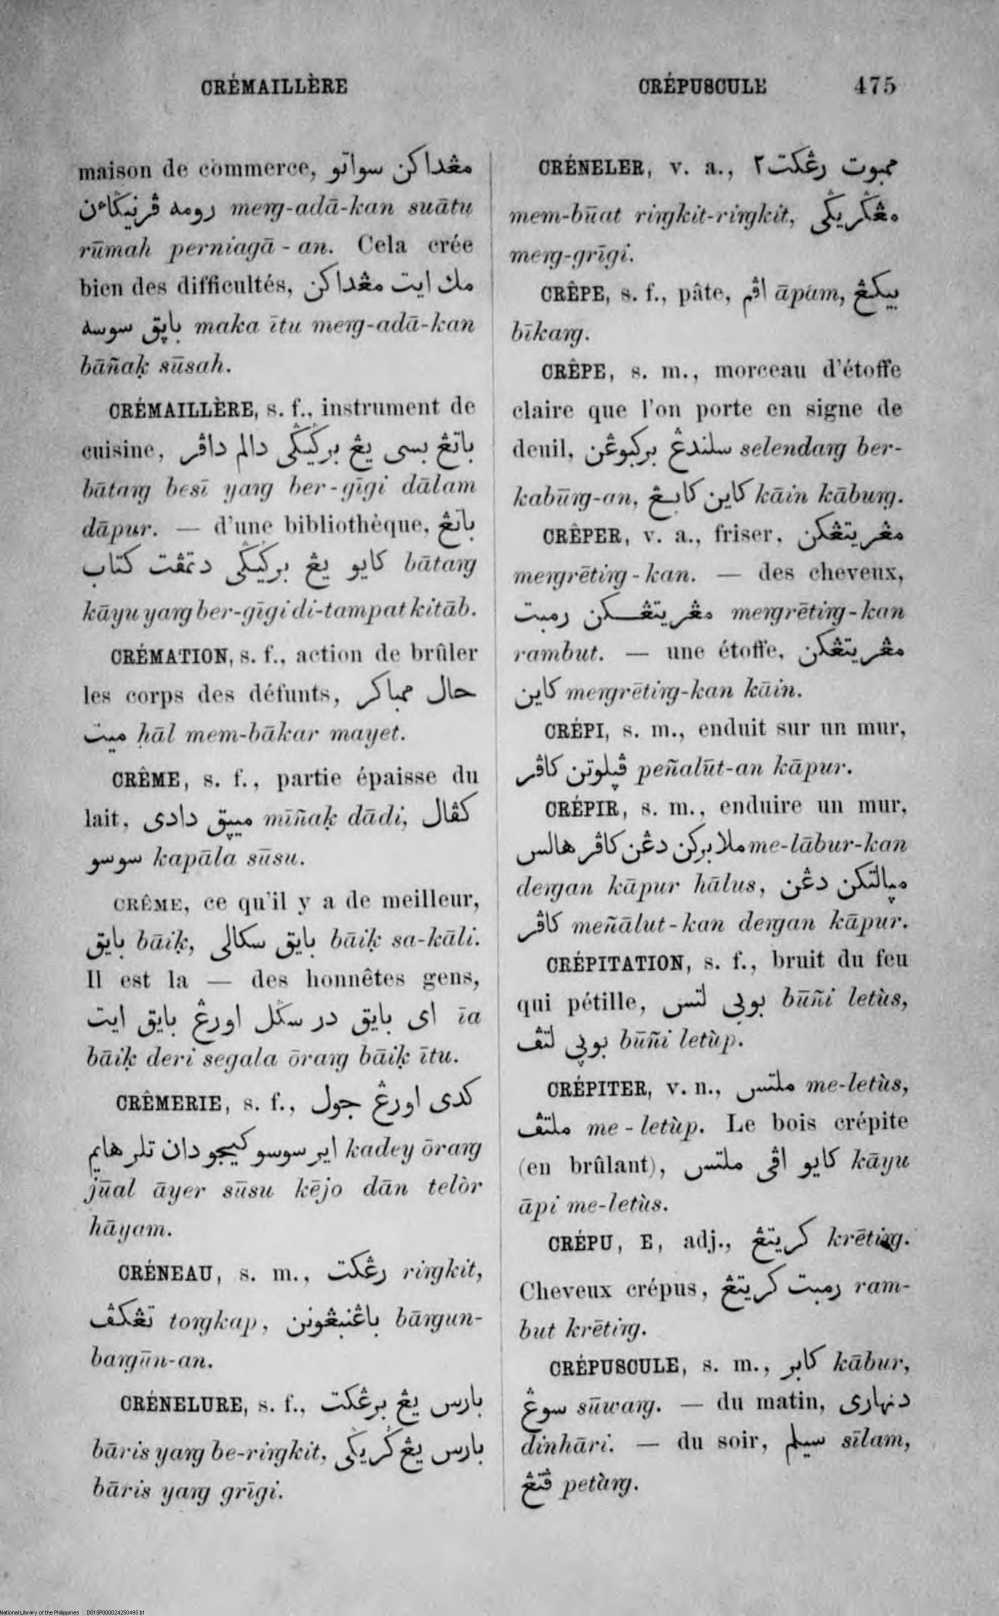 CRÉMAILLÈRE
CRÉPUSCULE 475
maison de commerce, مڠداكن سواتو
رومه ڤرنيڬاءن meṅg-adā-kan suātu
rūmah perniagā-an. Cela crée
bien des difficultés, مك ايت مڠداكن
باڽق سوسه maka ītu meṅg-adā-kan
bāñaḳ sūsah.
CRÉMAILLÈRE, s. f., instrument de
cuisine, باتڠ بسى يڠ برڬيڬى دالم داڤر
bātaṅg besī yaṅg ber-gīgi dālam
dāpur. — d'une bibliothèque, باتڠ
كايو يڠ برڬيڬى دتمڤت كتاب bātaṅg
kāyu yaṅg ber-gīgi di-tampat kitāb.
CRÉMATION, s. f., action de brûler
les corps des défunts, حال ممباكر
ميت hāl mem-bākar mayet.
CRÊME, s. f., partie épaisse du
lait, ميڽق دادى mīñaḳ dādi, كڤال
سوسو kapāla sūsu.
CRÊME, ce qu'il y a de meilleur,
بايق bāiḳ, بايق سكالى bāiḳ sa-kāli.
Il est la — des honnêtes gens,
اى بايق در سڬل اورڠ بايق ايت īa
bāiḳ deri segala ōraṅg bāiḳ ītu.
CRÊMERIE, s. f., كدى اورڠ جول
اير سوسو كيجو دان تلر هايم kadey ōraṅg
jūal āyer sūsu kējo dān telòr
hāyam.
CRÉNEAU, s. m., رڠكت riṅgkit,
تڠكڤ toṅgkap, باڠنبڠونن bāṅgun-
baṅgūn-an.
CRÉNELURE, s. f., بارس يڠ برڠكت
bāris yaṅg be-riṅgkit, بارس يڠ ڬريڬى
bāris yaṅg grīgi.
CRÉNELER, v. a., ممبوت رڠكت٢
mem-būat riṅgkit-riṅgkit, مڠڬريڬى
meṅg-grīgi.
CRÊPE, s. f., pâte, اڤم āpam, بيكڠ
bīkaṅg.
CRÊPE, s. m., morceau d'étoffe
claire que l'on porte en signe de
deuil, سلندڠ بركبوڠن selendaṅg ber-
kabūṅg-an, كاين كابڠ kāin kābuṅg.
CRÊPER, v. a., friser, مڠريتڠكن
meṅgrētiṅg-kan. — des cheveux,
مڠريتڠكن رمبت meṅgrētiṅg-kan
rambut. — une étoffe, مڠريتڠكن
كاين meṅgrētiṅg-kan kāin.
CRÉPI, s. m., enduit sur un mur,
ڤڽلوتن كاڤر peñalūt-an kāpur.
CRÉPIR, s. m., enduire un mur,
ملابركن دڠن كاڤر هالس me-lābur-kan
deṅgan kāpur hālus, مڽالتكن دڠن
كاڤر meñālut-kan deṅgan kāpur.
CRÉPITATION, s. f., bruit du feu
qui pétille, بوڽي لتس būñi letùs,
بوڽي لتڤ būñi letùp.
CRÉPITER, v. n., ملتس me-letùs,
ملتڤ me-letùp. Le bois crépite
(en brûlant), كايو اڤى ملتس kāyu
āpi me-letùs.
CRÉPU, E, adj., كريتڠ krētiṅg.
Cheveux crépus, رمبت كريتڠ ram-
but krētiṅg.
CRÉPUSCULE, s. m., كابر kābur,
سوڠ sūwaṅg. — du matin, دنهارى
dinhāri. — du soir, سيلم sīlam,
ڤتڠ petàṅg.
National Library of the Philippines